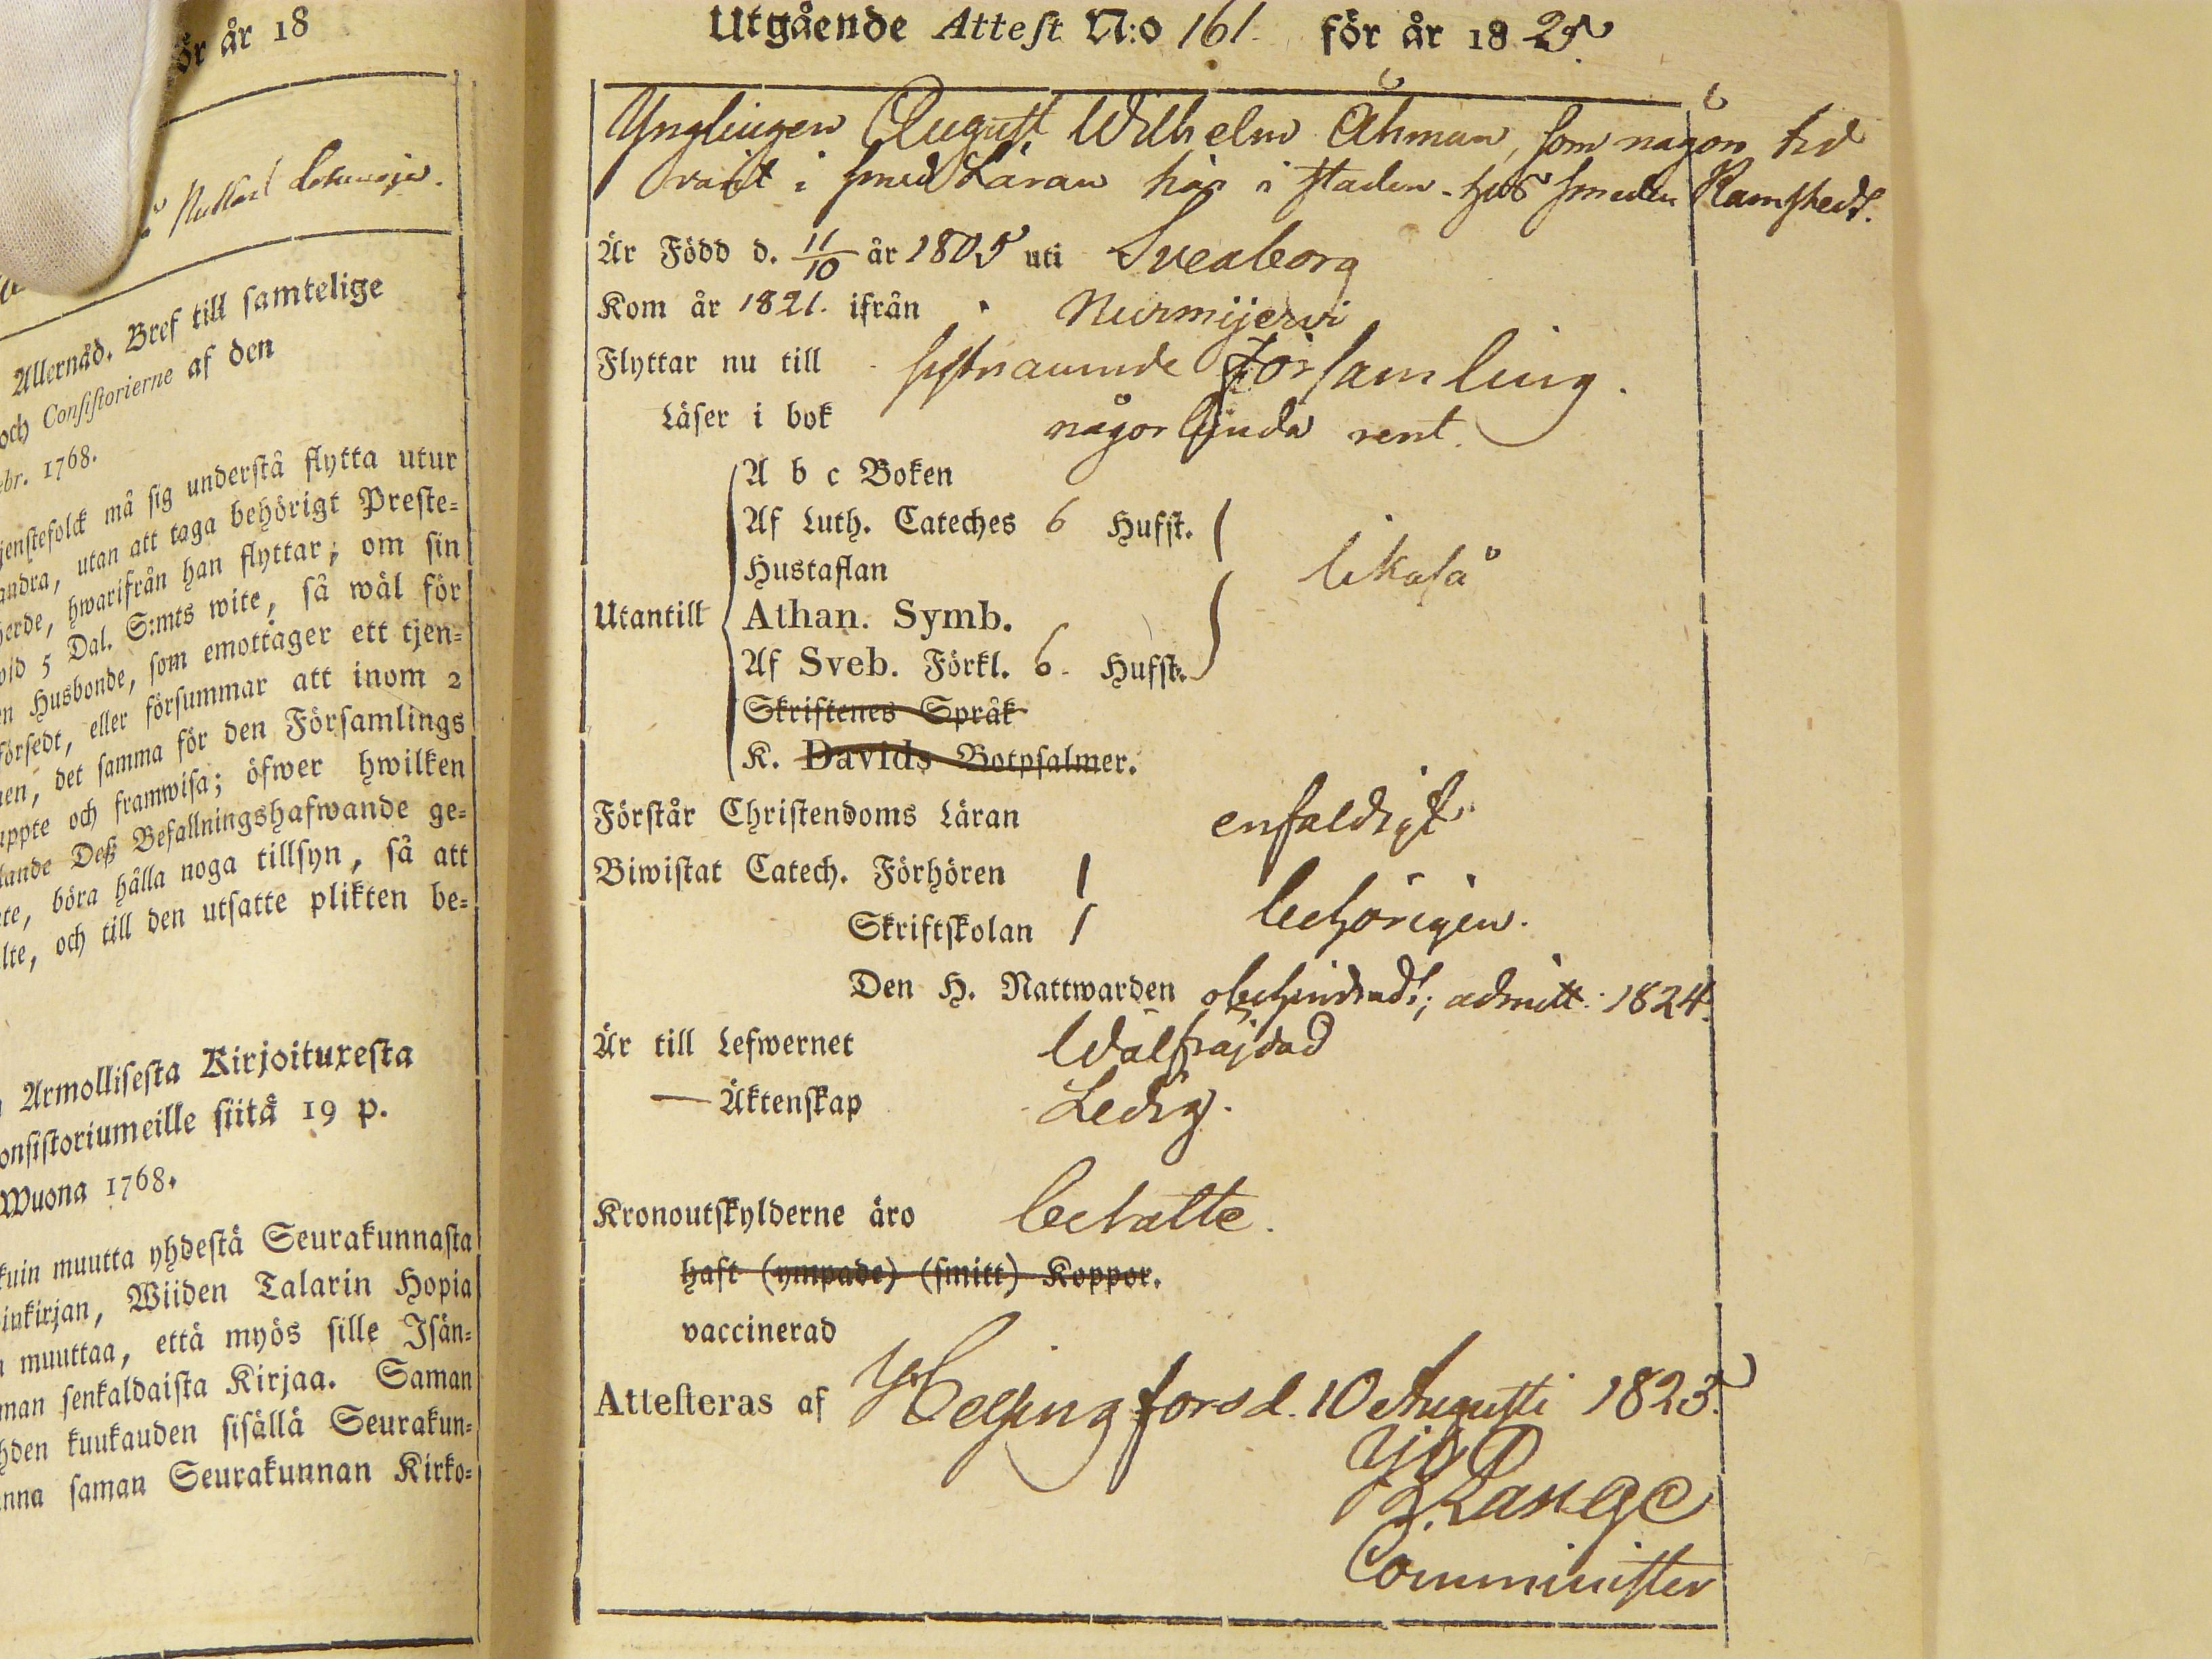 ör år 18
Allernåd. Bref till samtelige
och Consistorierne af den
ebr. 1768.
jenstefolck må sig understå flytta utur
andra, utan att taga behörigt Preste-
herde, hwarifrån han flyttar; om sin
wid 5 Dal. S:mts wite, så wäl för
en Husbonde, som emottager ett tjen-
försedt, eller försummar att inom 2
nen, det samma för den Församlings
uppte och framwisa; öfwer hwilken
lande Deß Befallningshafwande ge-
te, böra hålla noga tillsyn, så att
lte, och till den utsatte plikten be-
Armollisesta Kirjoituxesta
onsistoriumeille siitä 19 p.
Wuona 1768.
kuin muutta yhdestä Seurakunnasta
inkirjan, Wiiden Talarin Hopia
muuttaa, että myös sille Isän-
man senkaldaista Kirjaa. Saman
hden kuukauden sisällä Seurakun-
nna saman Seurakunnan Kirko-
Utgående Attest N:o 161. för år 1825.
Ynglingen August Wilhelm Åhman, som någon tid
varit i smed Läran här i staden hos smeden Ramstedt.
Är Född d. 11/10 år 1805 uti Sveaborg
Kom år 1821. ifrån Nurmijervi
Flyttar nu till sistnämnde Församling.
Läser i bok någorlunda rent.
A b c Boken
Af Luth. Cateches 6 Hufst.
Hustaflan likaså
Utantill Athan. Symb.
Af Sveb. Förkl. 6. Hufst.
Skriftenes Språk
K. Davids Botpsalmer.
Förstår Christendoms Läran enfaldigt
Biwistat Catech. Förhören
Skriftskolan behörigen.
Den H. Nattwarden obehindradt; admitt. 1824.
Är till Lefwernet Wälfräjdad
— Äktenskap Ledig.
Kronoutskylderne äro betalte.
haft (ympade) (smitt) Koppor.
vaccinerad
Attesteras af Helsingfors d. 10 Augusti 1825.
Lange
Comminister